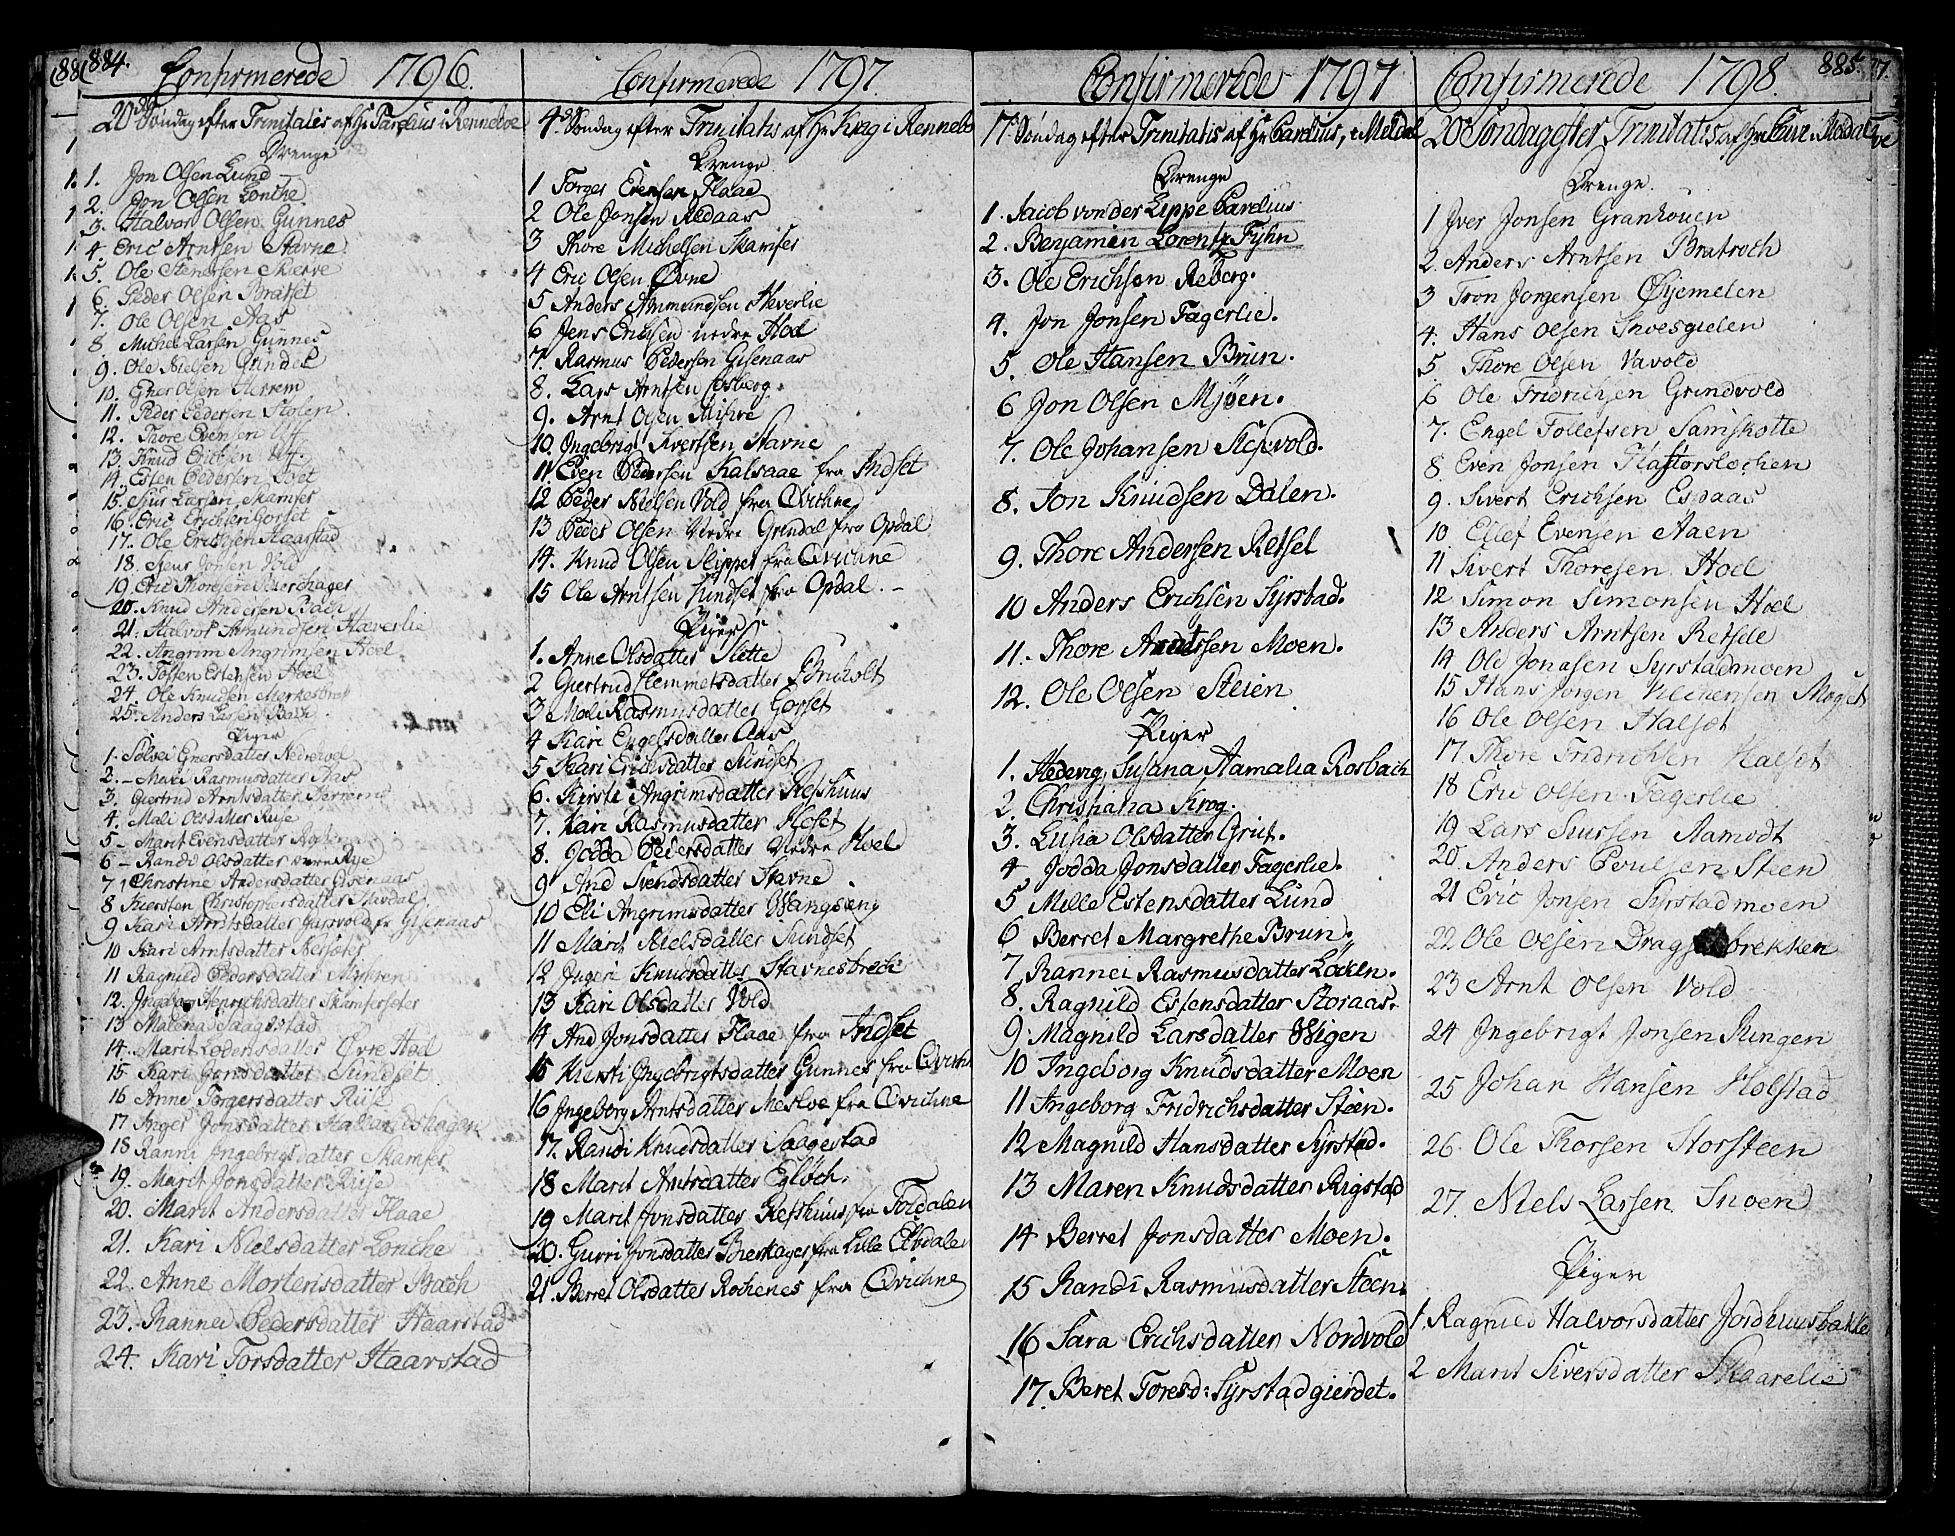 884.
Confirmerede 1796.
20de Søndag efter Trinitatis af Hr Parelius i Renneboe
Drenge
1. Jon Olsen Lund
2. Jon Olsen Lonthe
3. Halvor Olsen Gunnes
4. Eric Arntsen Stavne
5. Ole Stenersen Skierve
6. Peder Olsen Bratset
7. Ole Olsen Aas
8 Michel Larsen Gunnes
9. Ole Nielsen Grindal
10. Ener Olsen Herrem
11. Peder Pedersen Stolen
12. Thore Evensen Uff
13. Knud Erichsen Uff.
14. Esten Pedersen Hoet
15. Siur Larsen Skamfer
16. Eric Erichsen Gorset
17. Ole Erichsen Haarstad
18. Siur Jonsen Vold
19. Eric Thoresen
20. Knud Andersen Bach
21. Halvor Amundsen Hæverlie
22. Angrim Angrimsen Hoel
23. Tossen Estensen Hoel
24. Ole Knudsen Merkesbrot
25. Anders Larsen Bach
Piger
1. Solvei Enersdatter Nedrehoel
2. Mari Rasmusdatter Aas
3. Giertrud Arntsdatter Herrem
4. Mali Olsdatter Ruse
5 Marit Evensdatter
6 Randi Olsdatter Rye
7 Christine Andersdatter Gisenaas
8 Kiersten Christophersdatter Stavdal
9 Kari Arntsdatter Jarsvold fr Gisenaas
10 Kari Arntsdatter
11 Ragnild Pedersdatter
12. Ingebor Henrichsdatter Skamfersæter
13 Malena Saagestad
14. Marit Lodensdatter Øvre Hoel
15 Kari Jonsdatter Sundset
16 Anne Torgersdatter Ruse
17 Inger Jonsdatter
18 Ranni Ingebrigsdatter Skamfer
19. Marit Jonsdatter Ruse
20. Marit Andersdatter Flaae
21. Kari Nielsdatter Lonche
22. Anne Mortensdatter Bach
23. Rannei Pedersdatter Haarstad
24. Kari Torsdatter Haarstad
Confirmerede 1797.
4de Søndag efter Trinitatis af Hr Krog i Renneboe
Drenge
1 Torger Evensen Flaae
2 Ole Jonsen Redaas
3 Thore Michelsen Skamfer
4 Eric Olsen Øvne
5 Anders Ammundsen Heverlie
6 Jens Erichsen nedre Hoel
7. Rasmus Pedersen Gisenaas
8. Lars Arntsen Losberg.
9. Arnt Olsen
10. Ingebrigt Sivertsen Stavne
11. Even Pedersen Kalsaae fra Indset
12 Peder Nielsen Vold fra Qvichne
13 Peder Olsen Nedre Grindal fra Opdal
14. Knud Olsen Slipper fra Qvichne
15 Ole Arntsen Rindset fra Opdal.
Piger
1. Anne Olsdatter Slette
2 Giertrud Hemmetsdatter
3 Mali Rasmusdatter Gorset
4 Kari Engelsdatter Aas
5 Kari Erichsdatter Sundset
6. Kirsti Angrimsdatter Refshuus
7. Kari Rasmusdatter Hoset
8. Jodda Pedersdatter Nedre Hoel
9 And Svendsdatter Stavne
10 Eli Angrimsdatter Wangseng
11 Marit Nielsdatter Sundset
12 Ingeri Knudsdatter Stavnesbrede
13 Kari Olsdatter Vold
14 And Jonsdatter Flaae fra Indset
15 Kiersti Ingebrigtsdatter Gunnes fra Qvichne
16 Ingeborg Arntsdatter Mesloe fra Qvichne
17. Randi Knudsdatter Saagestad
18 Marit Arntsdatter Egløch.
19 Marit Jonsdatter Refshuus fra Tordalen
20. Gurri Jonsdatter Bierkager fra Lille Elvdalen
21. Berret Olsdatter Rochenes fra Qvichne
Confirmerede 1797
17de Søndag efter Trinitatis af Hr Parelius, i Meldal
Drenge
1. Jacob von der Lippe Parelius
2. Benjamin Lorentz Fyhn
3. Ole Erichsen Reberg.
4. Jon Jonsen Fagerlie.
5. Ole Hansen Brun.
6 Jon Olsen Mjøen.
7. Ole Johansen
8. Jon Knudsen Dalen.
9. Thore Andersen Retsel
10 Anders Erichsen Syrstad.
11. Thore Arntsen Moen.
12. Ole Olsen Steien
Piger
1. Hedevig Susana Hamalia Rosbach
2. Christiana Krog.
3. Lusia Olsdatter Griut.
4 Jodda Jonsdatter Fagerlie.
5 Mille Estensdatter Lund
6 Berret Margrethe Brun.
7. Rannei Rasmusdatter Löken.
8. Ragnild Estensdatter Storaas.
9. Magnild Larsdatter Wigen
10 Ingeborg Knudsdatter Moen
11 Ingeborg Fridrichsdatter Steen.
12 Magnild Hansdatter Syrstad.
13 Maren Knudsdatter Rigstad
14 Berret Jonsdatter Moen.
15 Randi Rasmusdatter Steen.
16 Sara Erichsdatter Nordvold
17. Beret Toresd: Syrstadgierdet.
885.
Confirmerede 1798.
20de Søndag efter Trinitatis af Hr i Meldal
Drenge.
1 Iver Jonsen Granhouen
2. Anders Arntsen Bratroch
3 Tron Jorgensen Øijemelen
4. Hans Olsen Snoesgielen
5 Thore Olsen Vavold
6 Ole Fridrichsen Grindvold
7. Engel Tollefsen Lamiskotte
8. Even Jonsen Klostorslochen
9. Sivert Erichsen Espaas
10 Eilef Evensen Aaen
11 Sivert Thoresen Hoel
12 Simon Simonsen Hoel
13 Anders Arntsen Retsele
14 Ole Jonasen Syrstadmoen
15 Hans Jorgen Moget
16 Ole Olsen Halset
17. Thore Fridrichsen Halset
18 Eric Olsen Fagerlie
19 Lars Siursen Aamodt
20. Anders Poulsen Steen
21 Eric Jonsen Syrstadmoen
22 Ole Olsen
23 Arnt Olsen Vold
24 Ingebrigt Jonsen Rungen
25 Johan Hansen Holstad
26. Ole Thorsen Storsteen
27. Niels Larsen Snoen
Piger
1. Ragnild Halvorsdatter Jordhuusbakke
2 Marit Siversdatter Skaarelie